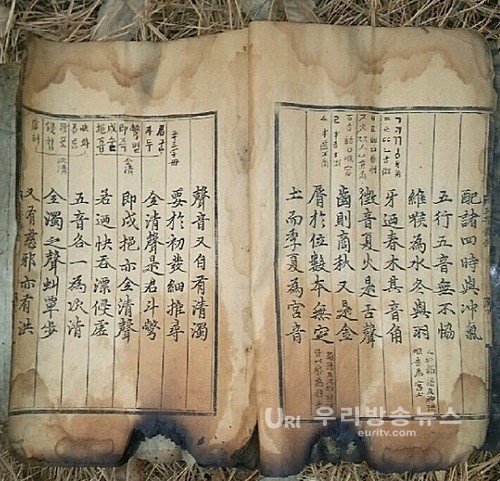 配諸四時與冲氣
五行五音無不恊
維喉為水冬與羽
牙迺春木其音角
徵音夏火是舌聲
齒則商秋又是金
脣於位數本無定
土而季夏為宮音
聲音又自有清濁
要於初發細推尋
全清聲是君斗彆
即戌挹亦全清聲
若迺快吞漂侵虛
五音各一為次清
全濁之聲虯覃步
又有慈邪亦有洪
全清
次清
URI 우리방송뉴스
euritv.com